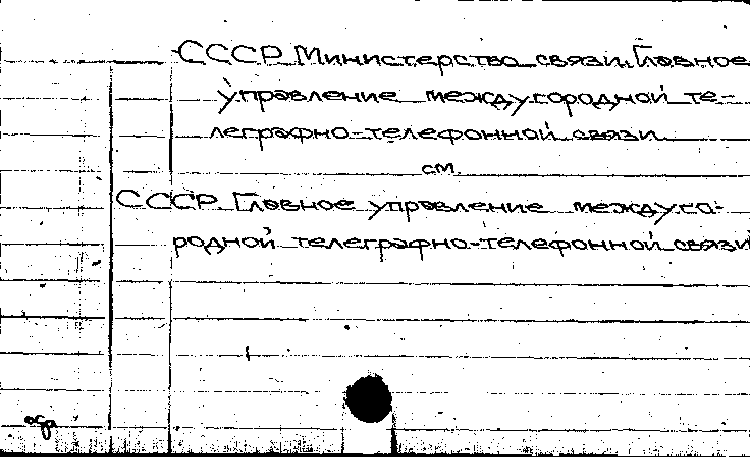 СССР. Министерство связи. Главное
управление междугородной те-
леграфно-телефонной связи
см.
СССР. Главное управление междуго-
родной телеграфно-телефонной связи